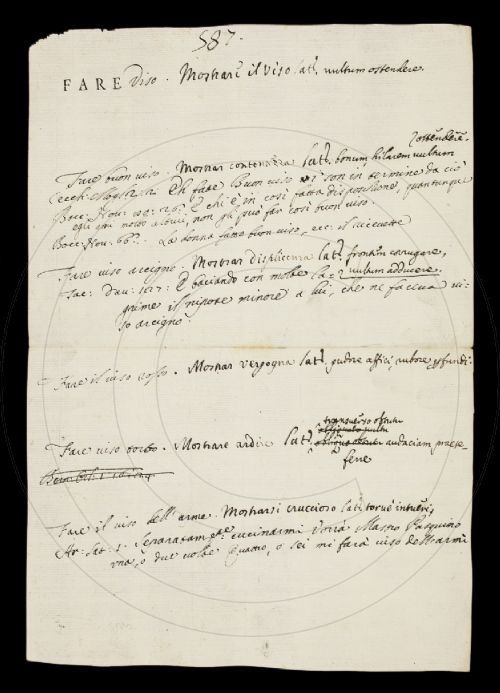 587.
FARE Viso. Mostrare il viso. Lat. vultum ostendere.
ostendere.
Fare buon viso. Mostrar contentezza. Lat. bonum, hilarem vultum
E di fare Buon viso son in termine da ciò
Bocc. Nov. E chi è in così fatta disposizione, quantunque
egli ami molto altrui, non gli può far così buon viso.
Bocc. Nov. La donna fatto buon viso, ecc. il ricevette
Fare viso arcigno. Mostrar displicenza. Lat. frontem corrugare,
vultum adducere.
Tac: Dav: E baciando con molte la-
grime il nipote minore a lui, che ne faceva vi-
so arcigno.
Fare il viso rosso. Mostrar vergogna. Lat. pudore affici, rubore effundi.
transverso
Fare viso torto. Mostrare ardire. Lat. audaciam praese-
ferre
Fare il viso dell'arme. Mostrarsi cruccioso. Lat. torvè intueri,
Ar. Sat. 1. Separatam.te cucinarmi vorrà Mastro Pasquino
una, o due volte e quattro, e sei mi farà viso dell'armi